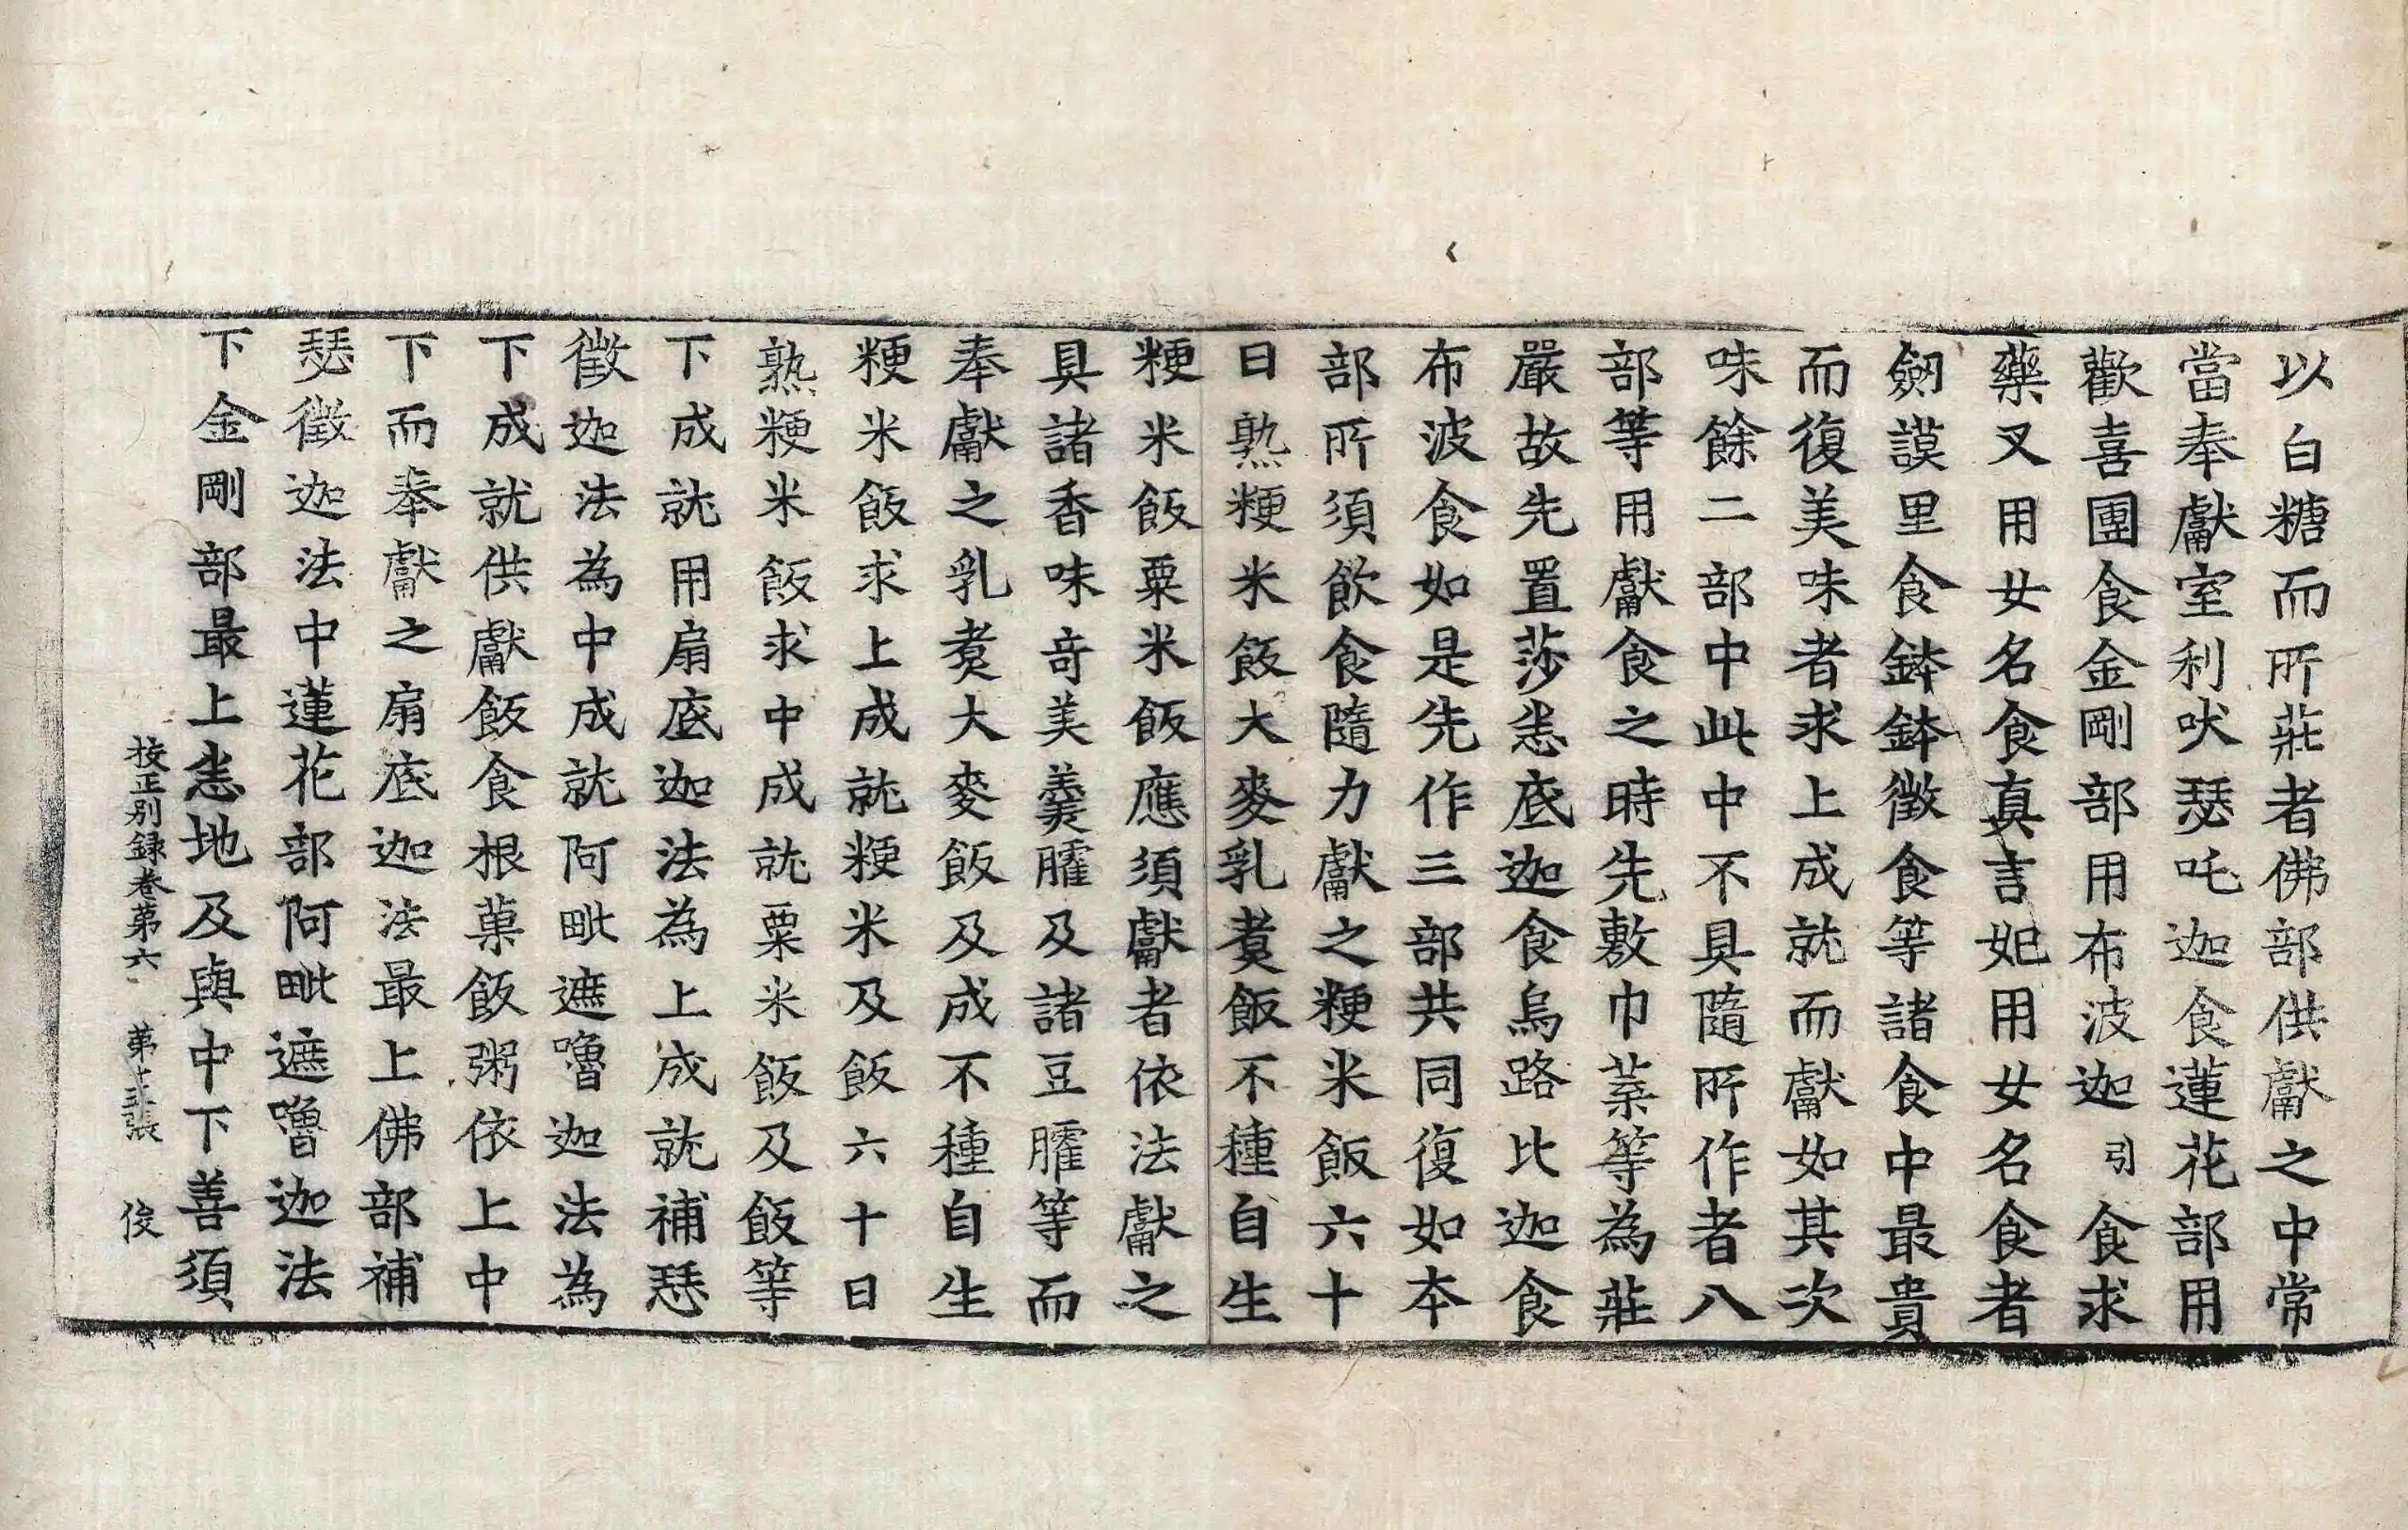 以白糖而所莊者佛部供獻之中常
當奉獻室利吠瑟吒迦食蓮花部用
歡喜團食金剛部用布波迦引食求
藥叉用女名食真言妃用女名食者
劒謨里食鉢鉢徵食等諸食中最貴
而復美味者求上成就而獻如其次
味餘二部中此中不具隨所作者八
部等用獻食之時先敷巾蒸等為莊
嚴故先置莎悉底迦食烏路比迦食
布波食如是先作三部共同復如本
部所須飲食隨力獻之粳米飯六十
日熟粳米飯大麥乳煑飯不種自生
粳米飯粟米飯應須獻者依法獻之
具諸香味奇美羹臛及諸豆臛等而
奉獻之乳煑大麥飯及成不種自生
粳米飯求上成就粳米及飯六十日
熟粳米飯求中成就粟米飯及飯等
下成就用扇底迦法為上成就補瑟
徵迦法為中成就阿毗遮嚕迦法為
下成就供獻飯食根菓飯粥依上中
下而奉獻之扇底迦法最上佛部補
瑟徵迦法中蓮花部阿毗遮嚕迦法
下金剛部最上悉地及與中下善須
挍正別録卷第六　第　張　俊